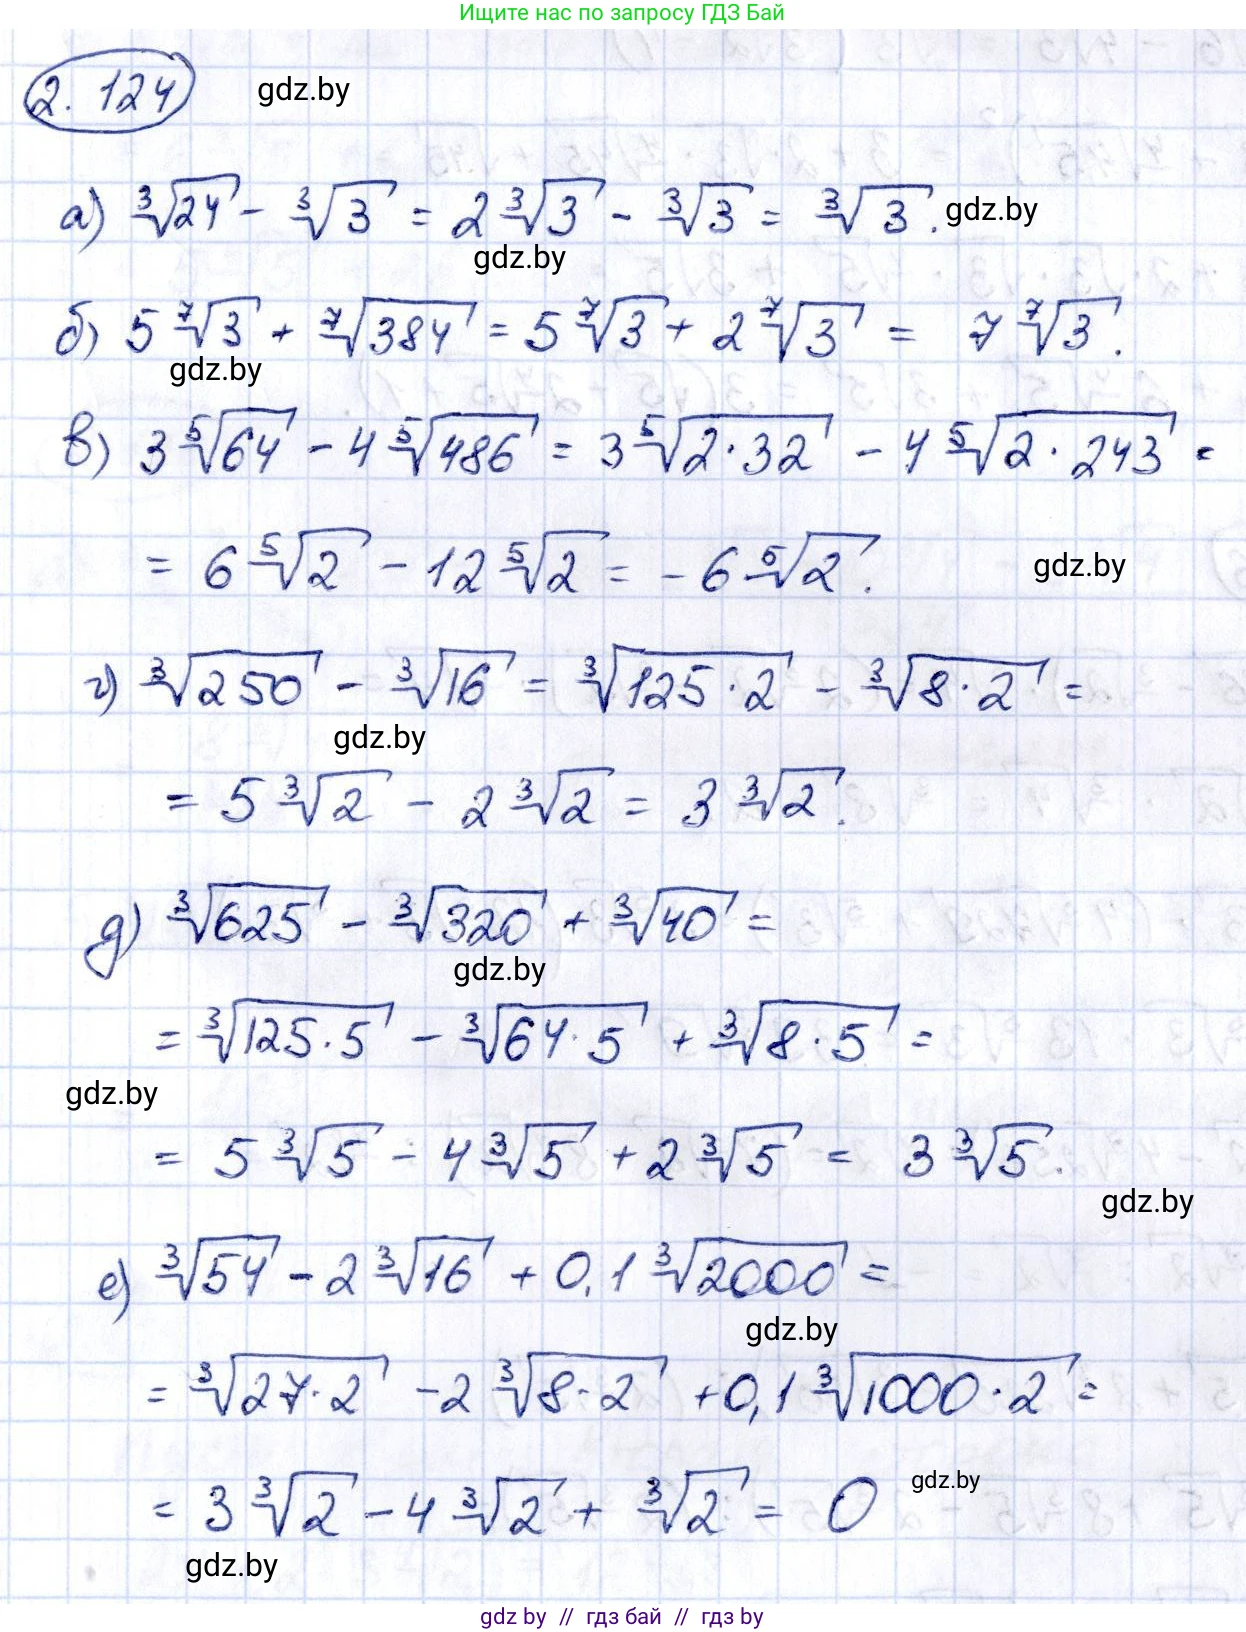 Ищите нас по запросу ГДЗ Бай
2.124 gdz.by
а) ∛24 - ∛3 = 2∛3 - ∛3 = ∛3. gdz.by
gdz.by
б) 5 ⁷√3 + ⁷√384 = 5 ⁷√3 + 2 ⁷√3 = 7 ⁷√3.
gdz.by
в) 3 ⁵√64 - 4 ⁵√486 = 3 ⁵√(2·32) - 4 ⁵√(2·243) =
= 6 ⁵√2 - 12 ⁵√2 = -6 ⁵√2. gdz.by
г) ∛250 - ∛16 = ∛(125·2) - ∛(8·2) =
gdz.by
= 5∛2 - 2∛2 = 3∛2.
д) ∛625 - ∛320 + ∛40 =
gdz.by
= ∛(125·5) - ∛(64·5) + ∛(8·5) =
gdz.by
= 5∛5 - 4∛5 + 2∛5 = 3∛5.
gdz.by
е) ∛54 - 2∛16 + 0,1∛2000 =
gdz.by
= ∛(27·2) - 2∛(8·2) + 0,1∛(1000·2) =
= 3∛2 - 4∛2 + ∛2 = 0 gdz.by
gdz.by
gdz by // гдз бай // гдз by